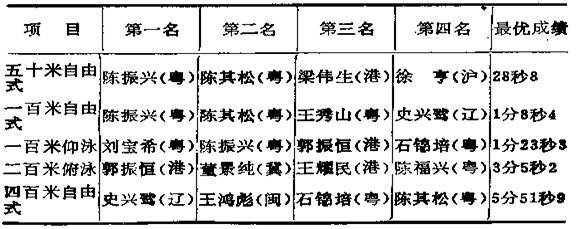 项 目 第一名 第二名 第三名 第四名 最优成绩
五十米自由式 陈振兴(粤) 陈其松(粤) 梁伟生(港) 徐 亨(沪) 28秒8
一百米自由式 陈振兴(粤) 陈其松(粤) 王秀山(粤) 史兴骘(辽) 1分8秒4
一百米仰泳 刘宝希(粤) 陈振兴(粤) 郭振恒(港) 石锦培(粤) 1分23秒3
二百米俯泳 郭振恒(港) 董景纯(冀) 王耀民(港) 陈福兴(粤) 3分5秒2
四百米自由式 史兴骘(辽) 王鸿彪(闽) 石锦培(粤) 陈其松(粤) 5分51秒9